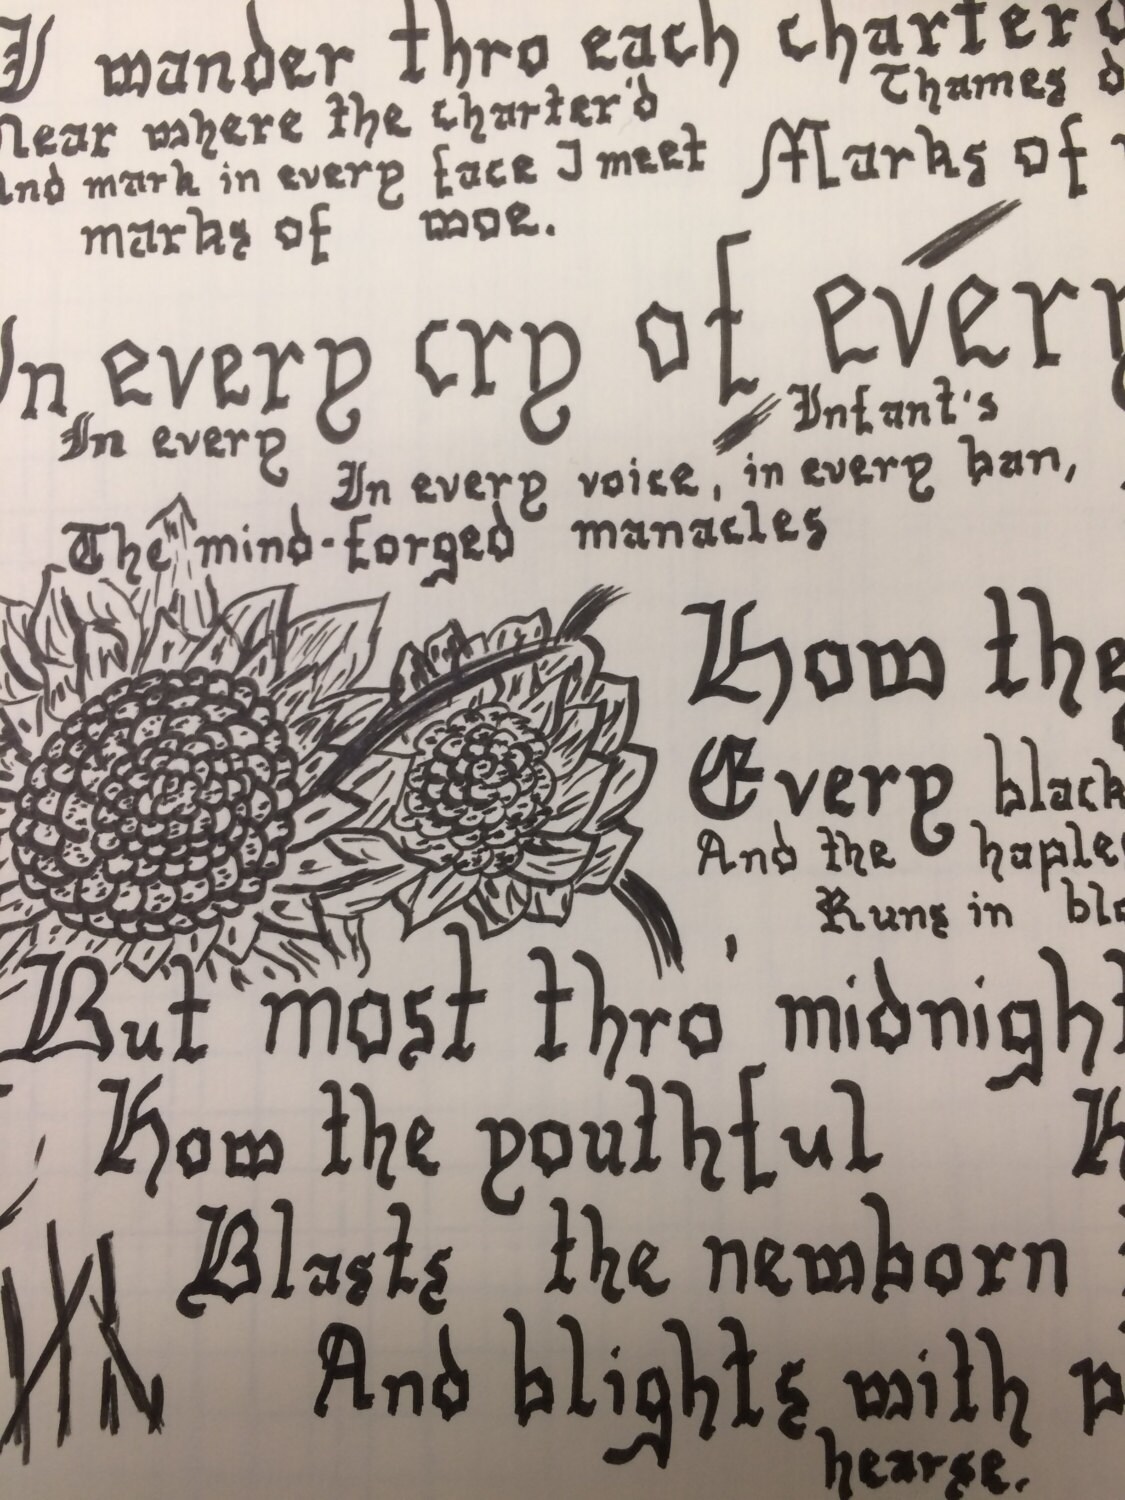 I wander thro each charter'd
Near where the charter'd Thames d
And mark in every face I meet Marks of
marks of woe.
In every cry of every
In every Infant's
In every voice, in every ban,
The mind-forged manacles
How the
Every black
And the haple
Runs in blo
But most thro' midnight
How the youthful H
Blasts the newborn
And blights with p
hearse.